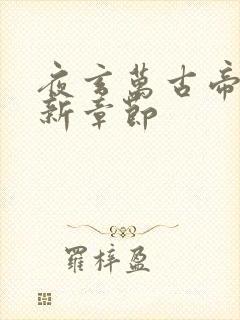 夜玄萬古帝
新章節
羅梓盈